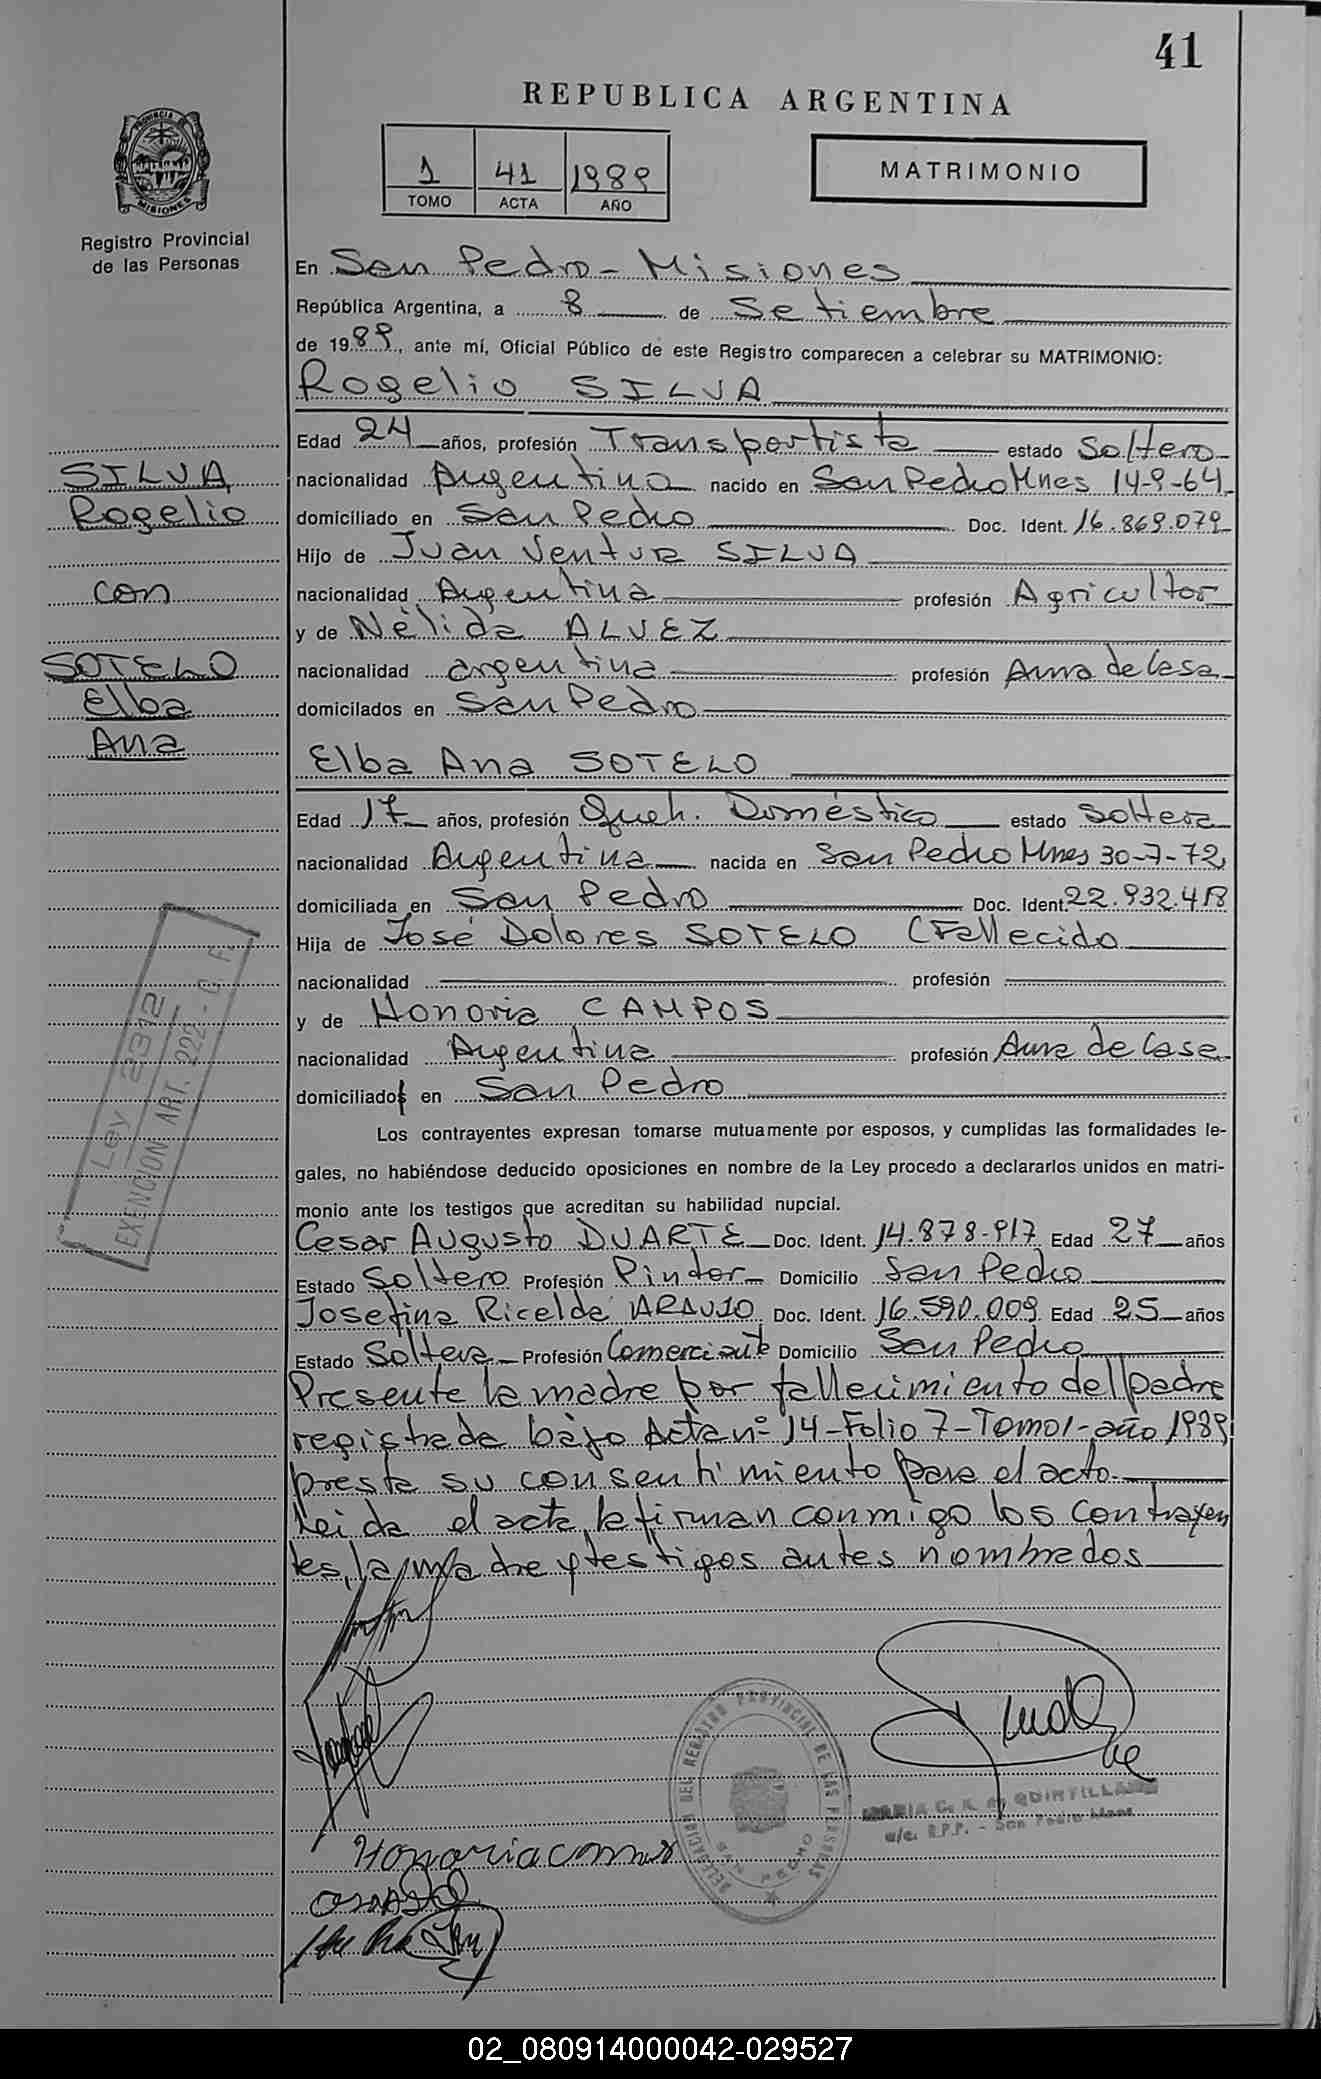 41
REPUBLICA ARGENTINA
1 41 1989
TOMO ACTA AÑO
MATRIMONIO
PROVINCIA DE
MISIONES
Registro Provincial
de las Personas
En San Pedro - Misiones
República Argentina, a 8 de Setiembre
de 1989, ante mí, Oficial Público de este Registro comparecen a celebrar su MATRIMONIO:
Rogelio SILVA
Edad 24 años, profesión Transportista estado Soltero
SILVA
nacionalidad Argentina nacido en San Pedro Mnes 14-9-64
Rogelio
domiciliado en San Pedro Doc. Ident. 16.869.079
Hijo de Juan Ventura SILVA
con
nacionalidad Argentina profesión Agricultor
y de Nélida ALVEZ
SOTELO
nacionalidad argentina profesión Ama de Casa
Elba
domicilados en San Pedro
Ana
Elba Ana SOTELO
Edad 17 años, profesión Queh. Doméstico estado soltera
nacionalidad Argentina nacida en San Pedro Mnes 30-7-72
domiciliada en San Pedro Doc. Ident. 22.932.418
Hija de José Dolores SOTELO (Fallecido
nacionalidad profesión
y de Honoria CAMPOS
nacionalidad Argentina profesión Ama de Casa
domiciliados en San Pedro
Ley 2312
EXENCION ART. 222 - C.F.
Los contrayentes expresan tomarse mutuamente por esposos, y cumplidas las formalidades le-
gales, no habiéndose deducido oposiciones en nombre de la Ley procedo a declararlos unidos en matri-
monio ante los testigos que acreditan su habilidad nupcial.
Cesar Augusto DUARTE Doc. Ident. 14.878.917 Edad 27 años
Estado Soltero Profesión Pintor Domicilio San Pedro
Josefina Ricelde ARAUJO Doc. Ident. 16.590.009 Edad 25 años
Estado Soltera Profesión Comerciante Domicilio San Pedro
Presente la madre por fallecimiento del padre
registrada bajo Acta nº 14-Folio 7-Tomo 1-año 1989
presta su consentimiento para el acto.
Leida el acta, la firman conmigo los contrayen
tes, la madre y testigos antes nombrados
DELEGACION DEL REGISTRO PROVINCIAL DE LAS PERSONAS
SAN PEDRO
MARIA C. K. de QUINTILLANA
a/c. R.P.P. - San Pedro Mnes
Honoria
02_080914000042-029527